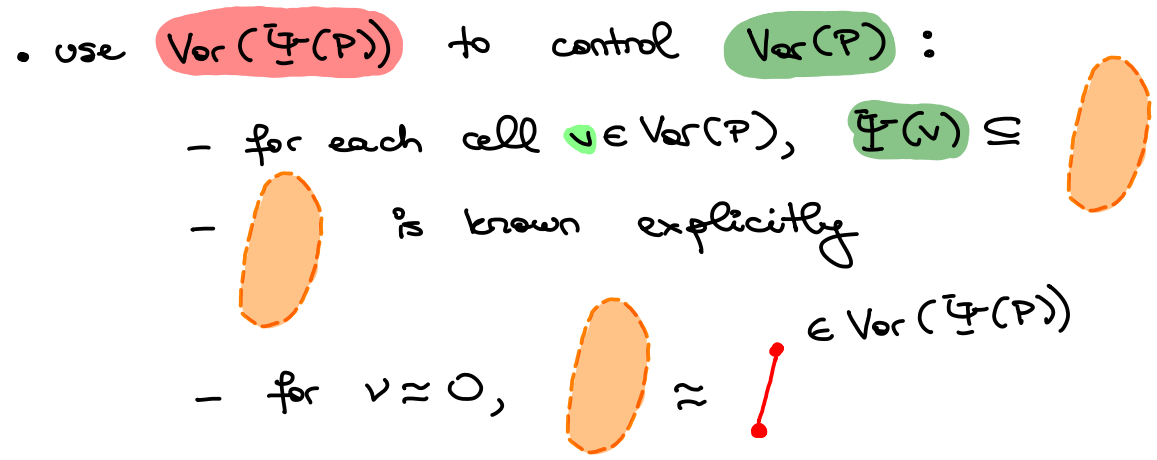 • use Vor(Ψ(P)) to control Vor(P) :
- for each cell v ∈ Vor(P), Ψ(v) ⊆
- is known explicitly
∈ Vor(Ψ(P))
- for v ≈ 0, ≈